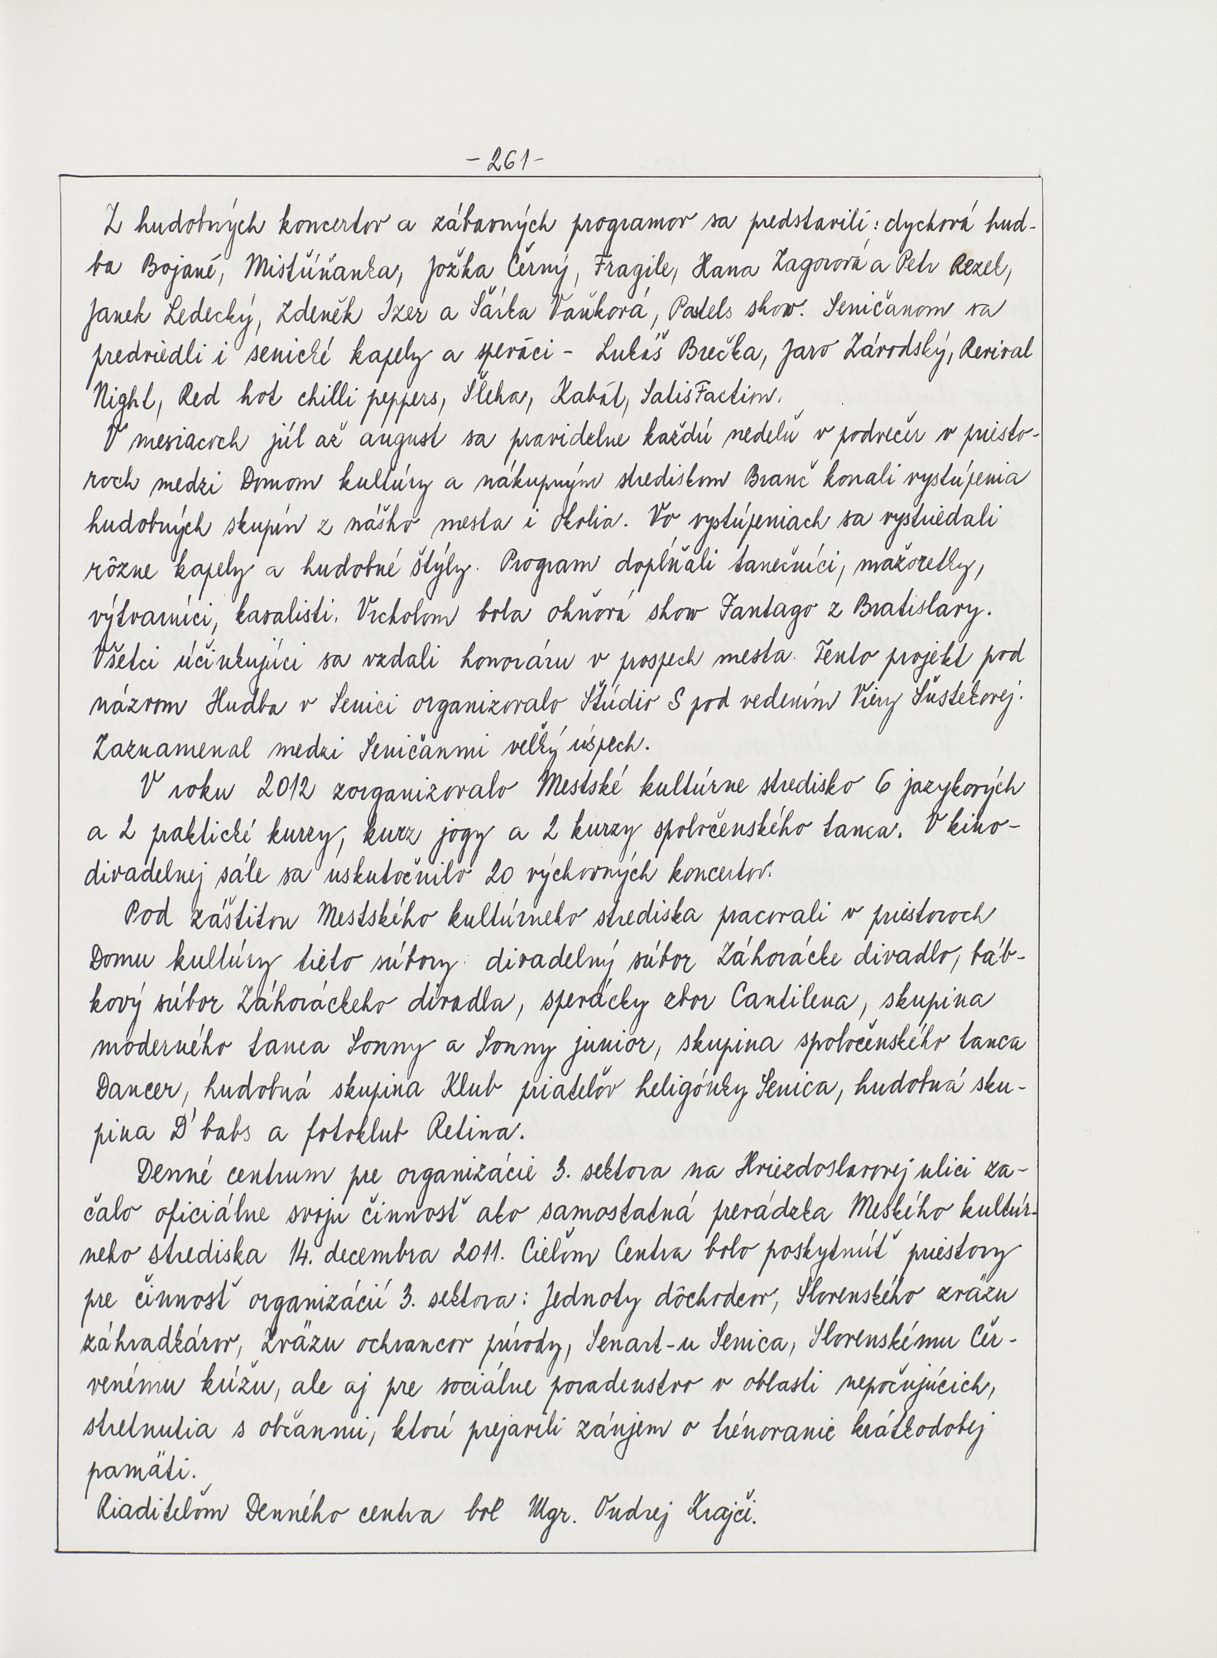 - 261 -
Z hudobných koncertov a zábavných programov sa predstavili: dychová hud-
ba Bojané, Mistříňanka, Jožka Černý, Fragile, Hana Zagorová a Petr Rezek,
Janek Ledecký, Zdeněk Izer a Šárka Vaňková, Pastels show. Seničanom sa
predviedli i senické kapely a speváci - Lukáš Brečka, Jaro Závodský, Revival
Night, Red hot chilli peppers, Sleha, Kabát, SatisFaction.
V mesiacoch júl až august sa pravidelne každú nedeľu v podvečer v priesto-
roch medzi Domom kultúry a nákupným strediskom Branč konali vystúpenia
hudobných skupín z nášho mesta i okolia. Vo vystúpeniach sa vystriedali
rôzne kapely a hudobné štýly. Program dopĺňali tanečníci, mažoretky,
výtvarníci, kavalisti. Vrcholom bola ohňová show Fantago z Bratislavy.
Všetci účinkujúci sa vzdali honoráru v prospech mesta. Tento projekt pod
názvom Hudba v Senici organizovalo Štúdio S pod vedením Viery Šustekovej.
Zaznamenal medzi Seničanmi veľký úspech.
V roku 2012 zorganizovalo Mestské kultúrne stredisko 6 jazykových
a 2 praktické kurzy, kurz jogy a 2 kurzy spoločenského tanca. V kino-
divadelnej sále sa uskutočnilo 20 výchovných koncertov.
Pod záštitou Mestského kultúrneho strediska pracovali v priestoroch
Domu kultúry tieto súbory: divadelný súbor Záhorácke divadlo, báb-
kový súbor Záhoráckeho divadla, spevácky zbor Cantilena, skupina
moderného tanca Sonny a Sonny junior, skupina spoločenského tanca
Dancer, hudobná skupina Klub priateľov heligónky Senica, hudobná sku-
pina D'babs a fotoklub Retina.
Denné centrum pre organizácie 3. sektora na Hviezdoslavovej ulici za-
čalo oficiálne svoju činnosť ako samostatná prevádzka Meského kultúr-
neho strediska 14. decembra 2011. Cieľom Centra bolo poskytnúť priestory
pre činnosť organizácií 3. sektora: Jednoty dôchodcov, Slovenského zväzu
záhradkárov, Zväzu ochrancov prírody, Senart-u Senica, Slovenskému Čer-
venému krížu, ale aj pre sociálne poradenstvo v oblasti nepočujúcich,
stretnutia s občanmi, ktorí prejavili záujem o trénovanie krátkodobej
pamäti.
Riaditeľom Denného centra bol Mgr. Ondrej Krajči.